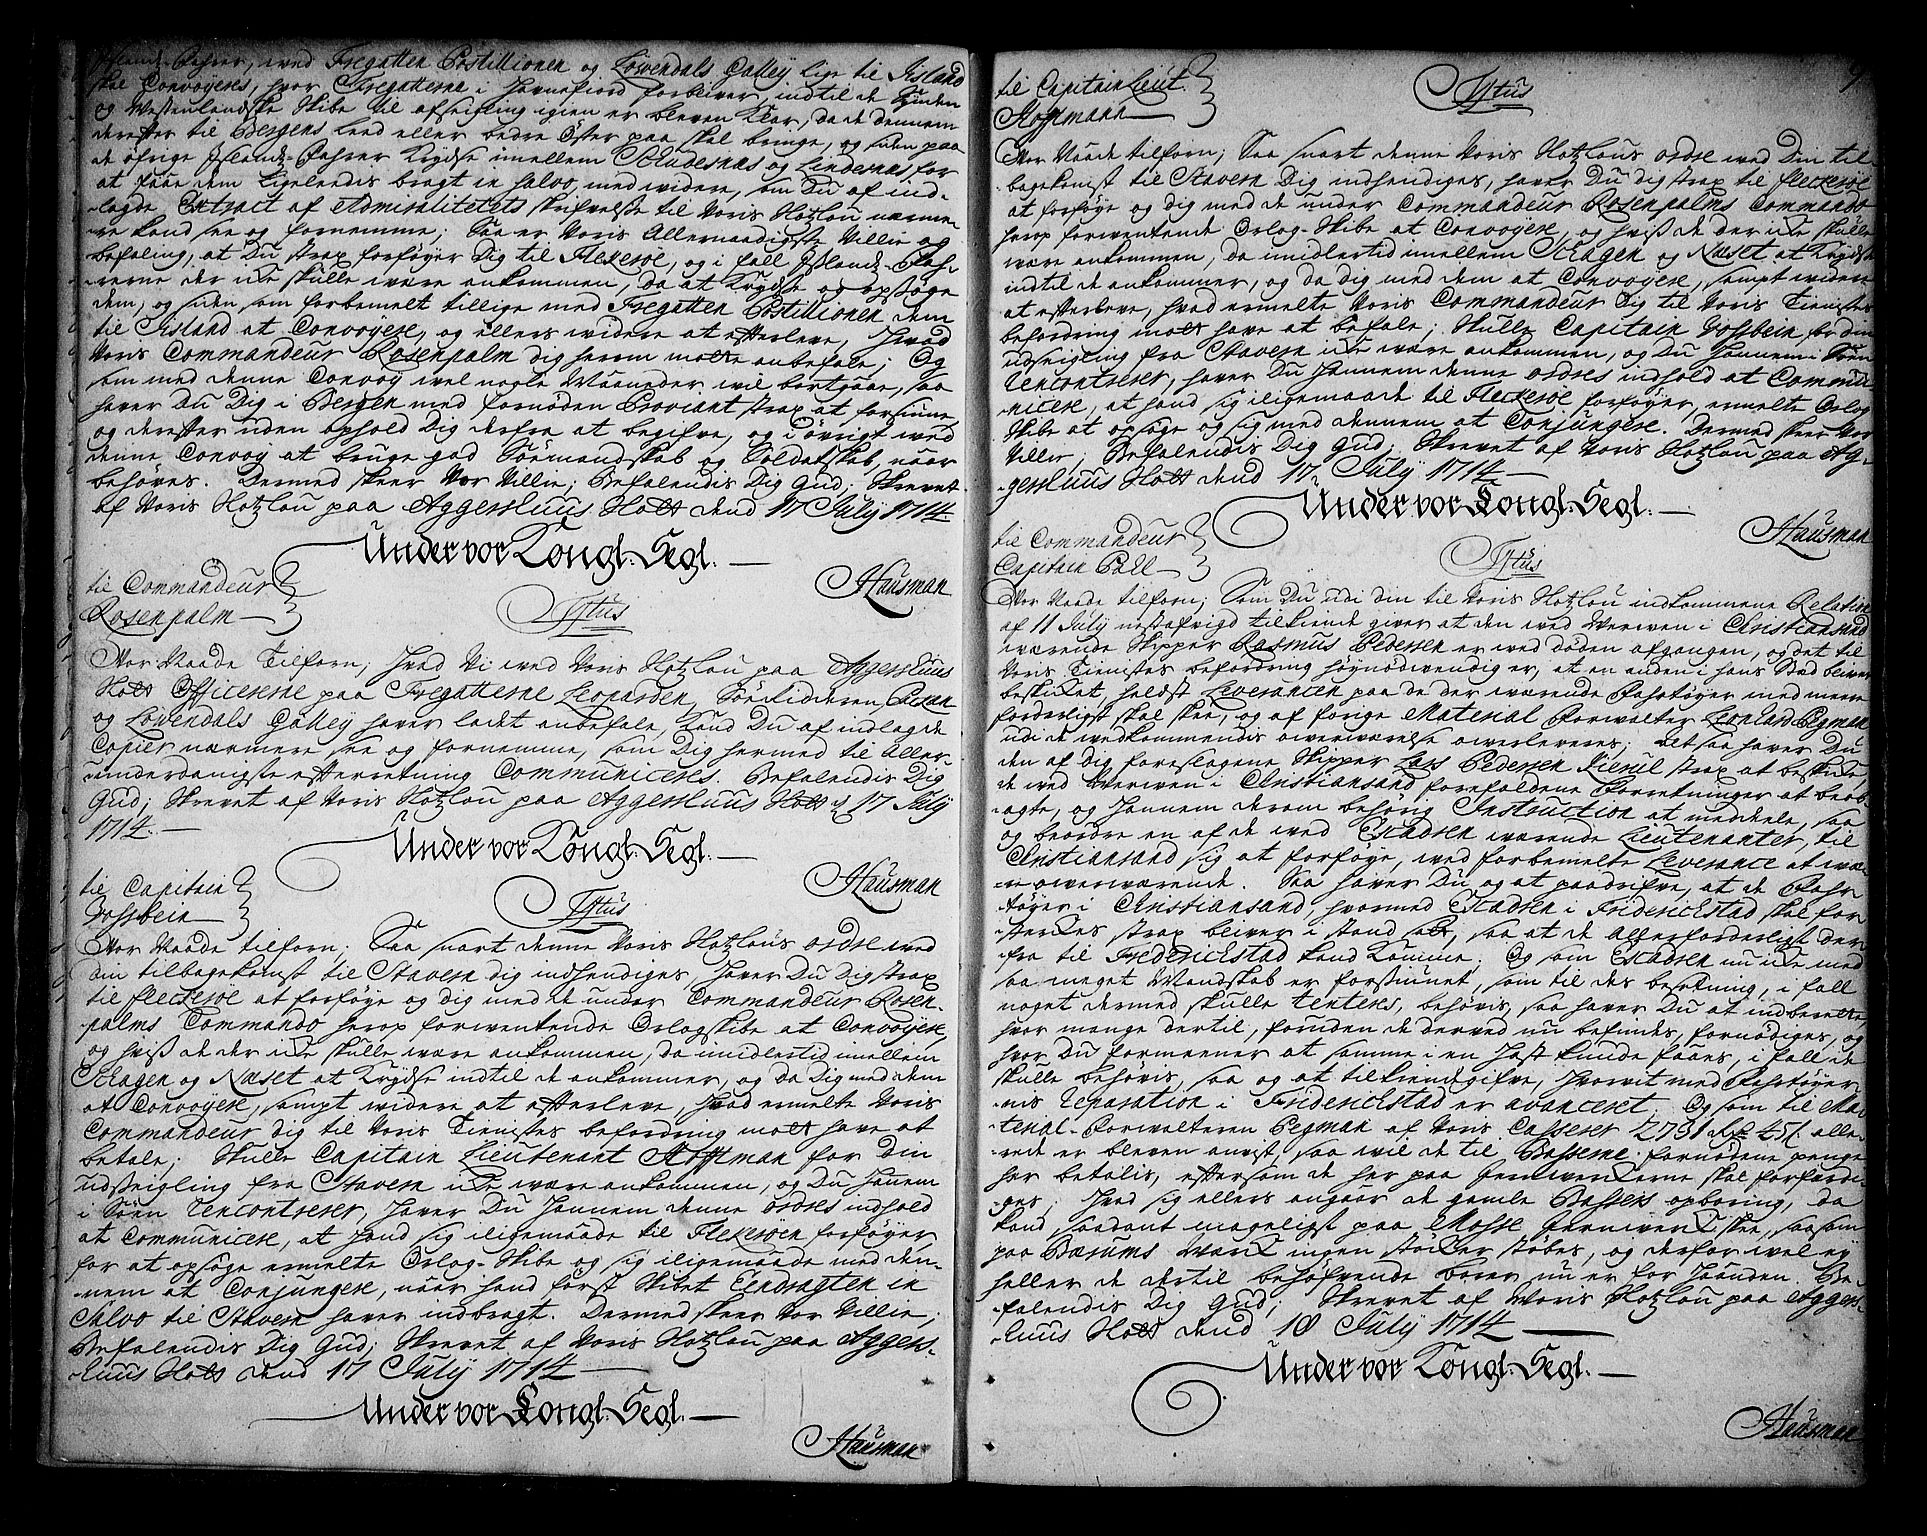 Fahrer, med Fregatten Postillionen og Löwendals Galley lige til Jisland
skal Convoyeres, hvor Fregatterne i Havnefiord forbliver, indtil de Synden
og Westenlandske Skibe til afseigling igien er bleven klar, da de dennem
derefter til Bergens leed eller bedre Öster paa skal bringe, og siden paa
de öfrige Jslands-Fahrer krydse imellem Schudesnæs og Lindesnæs for
at faae dem Ligeledis bragt in salvo, med widere, som Du af ind-
-lagde Extract af Admiralitetets skrifvelse til Voris Slotzlou nærme-
re kand see og fornemme; Saa er Voris Allernaadigste Villie og
befaling, at Du strax forföyer Dig til Flekeröe, og i fall Jslands-Fah-
rerne der icke skulle være ankommen, da at krydse og opsöge
dem, og siden som forbemelt tillige med Fregatten Postillionen dem
til Jisland at Convoyere, og ellers widere at efterleve, hvad
Voris Commandeur Rosenpalm dig herom monte anbefale; Og
som med denne Convoy wel nogle Maaneder wil bortgaae, saa
haver Du Dig i Bergen med fornöden Proviant strax at forsiune
og derefter uden ophold Dig derfra at begifve, og i övrigt wed
denne Convoy at bruge god Sömandskab og Soldatskab, naar
behöves. Dermed skeer Vor Villie; Befalendis Dig Gud; Skrevet
af Voris Slotzlou paa Aggershuus Slott dend 17 July 1714
Under vor Kongl. Segl.
Hausman
til Commandeur
Rosenpalm
Tÿtus
Vor Naade Tilforn; Hvad Vi wed Voris Slotzlou paa Aggershuus
Slott Officererne paa Fregatterne Leoparden, Söeridderen, Pacan
og Löwendals Galley haver ladet anbefale, kand Du af indlagde
Copier nærmere see og fornemme, som Dig hermed til Aller-
-underdanigste efterretning Communiceres. Befalendis Dig
Gud; Skrevet af Voris Slotzlou paa Aggershuus Slott d. 17 July
1714.
Under vor Kongl. Segl.
Hausman
til Capitain
Vossbein
Tÿtus
Vor Naade tilforn; Saa snart denne Voris Slotzlous ordre wed
din tilbagekomst til Stavern dig indhendiges, haver Du Dig strax
til fleckeröe at forföye og dig med de under Commandeur Rosen-
-palms Commando herop forwentende Orlogskibe at Convoyere,
og hvis de der icke skulle være ankommen, da imidlertid imellem
Skagen og Næset at krydse indtil de ankommer, og da Dig med dem
at Convoyere, sampt widere at efterleve, hvad ermelte Voris
Commandeur dig til Voris Tienistes befordring monte have at
befale; Skulle Capitain Lieutenant Stoffman for Din
udseigling fra Stavern icke være ankommen, og Du hannem
i Söen Rencontrerer, haver Du hannem denne ordres indhold
at Communicere, at hand sig iligemaade til Flekeröen forföyer
for at opsöge ermelte Orlog-Skibe og sig iligemaade med den-
-nem at Conjungere, naar hand först Skibet Eendragten in
Salvo til Stavern haver indbragt. Dermed skeer Vor Villie;
Befalendis Dig Gud; Skrevet af Voris Slotzlou paa Aggers-
-huus Slott dend 17 July 1714
Under vor Kongl. Segl.
Hausman
til Capitain Lieut.
Stoffmann
Tÿtus
Vor Naade tilforn; Saa snart denne Voris Slotzlous ordre wed Din til-
-bagekomst til Stavern Dig indhendiges, haver Du dig strax til fleckeröe
at forföye og dig med de under Commandeur Rosenpalms Commando
herop forwentende Orlog-Skibe at Convoyere, og hvis de der icke skulle
være ankommen, da imidlertid imellem Skagen og Næset at krydse
indtil de ankommer, og da dig med dem at Convoyere, sampt widere
at efterleve, hvad ermelte Voris Commandeur Dig til Voris Tienistes
befordring monte have at befale; Skulle Capitain Vossbein for din
udseigling fra Stavern icke være ankommen, og Du hannem i Söen
Rencontrerer, haver Du hannem denne ordres indhold at Commu-
-nicere, at hand sig iligemaade til Fleckeröe forföyer, ermelte Orlog
Skibe at opsöge og sig med dennem at Conjungere. Dermed skeer Vor
Villie; Befalendis Dig Gud; Skrevet af Voris Slotzlou paa Ag-
-gershuus Slott dend 17 July 1714
Under vor Kongl. Segl.
Hausman
til Commandeur
Capitain Pall
Tÿtus
Vor Naade tilforn; Som Du udi din til Voris Slotzlou indkommene Relation
af 11 July nestafvigd tilkiende giver at den wed Verwen i Christiansand
wærende Skipper Rasmus Pedersen er wed döden afgangen, og det til
Voris Tienistes befordring höynödwendig er, at en anden i hans Sted bliver
beskicket, heldst Leverancen paa de der wærende Fahrtöyer med meere
forderligst skal skee, og af forige Material Forwalter Leonard Pegman
udi de wedkommendis owerwærelse owerleveres; Det saa haver Du
den af Dig foreslagene Skipper Lars Pedersen Kienil strax at beskicke
de wed Verwen i Christiansand forefaldene Forretninger at beob-
-agte, og hannem derom behörig Instruction at meddeele, saa
og beordre en af de wed Escadren wærende Lieutenanter, til
Christiansand sig at forföye, wed forbemelte Leverance at wæ-
-re owerwærende. Saa haver Du og at paadrifve, at de Fahr
töyer i Christiansand, hvormed Escadren i Friderichstad skal for-
-sterckes strax bliver i stand satt, saa at de allerforderligst der-
-fra til Frederichstad kand komme; Og som Escadren nu icke med
saa meget Mandskab er forsiunet, som til des besetning, i fall
noget dermed skulle tenteres, behövis, saa haver Du at indberette,
hvor mange dertil, foruden de derwed nu befindes, fornödiges, og
hvor Du formeener at samme i en hast kunde faaes, i fall de
skulle behövis, saa og at tilkiendegifve, hvorvit med Fahrtöyer-
-nis reparation i Friderichstad er avanceret; Og som til Ma-
terial-Forwalteren Pegman af Voris Casserer 2731 Rdr 45 s. alle-
rede er bleven anvist, saa wil de til Basserne fornödne penge
her betalis, eftersom de her paa Jernwerckerne skal forfærdi-
ges; Hvad sig ellers angaar de gamle Bassers opboring, da
kand saadant mageligst paa Mosse Jernwerck skee, saasom
paa Bærums Werck ingen störcker stöbes, og derfor wel ey
heller de dertil behöfvende borer nu er for haanden. Be-
-falendis Dig Gud; Skrevet af Woris Slotzlou paa Aggers-
-huus Slott dend 18 July 1714
Under vor Kongl. Segl.
Hausman